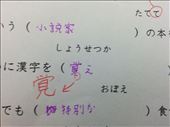 たてて
いう（小説家）の本
しょうせつか
に漢字を（覚え
覚
おぼえ
でも（特別な）食